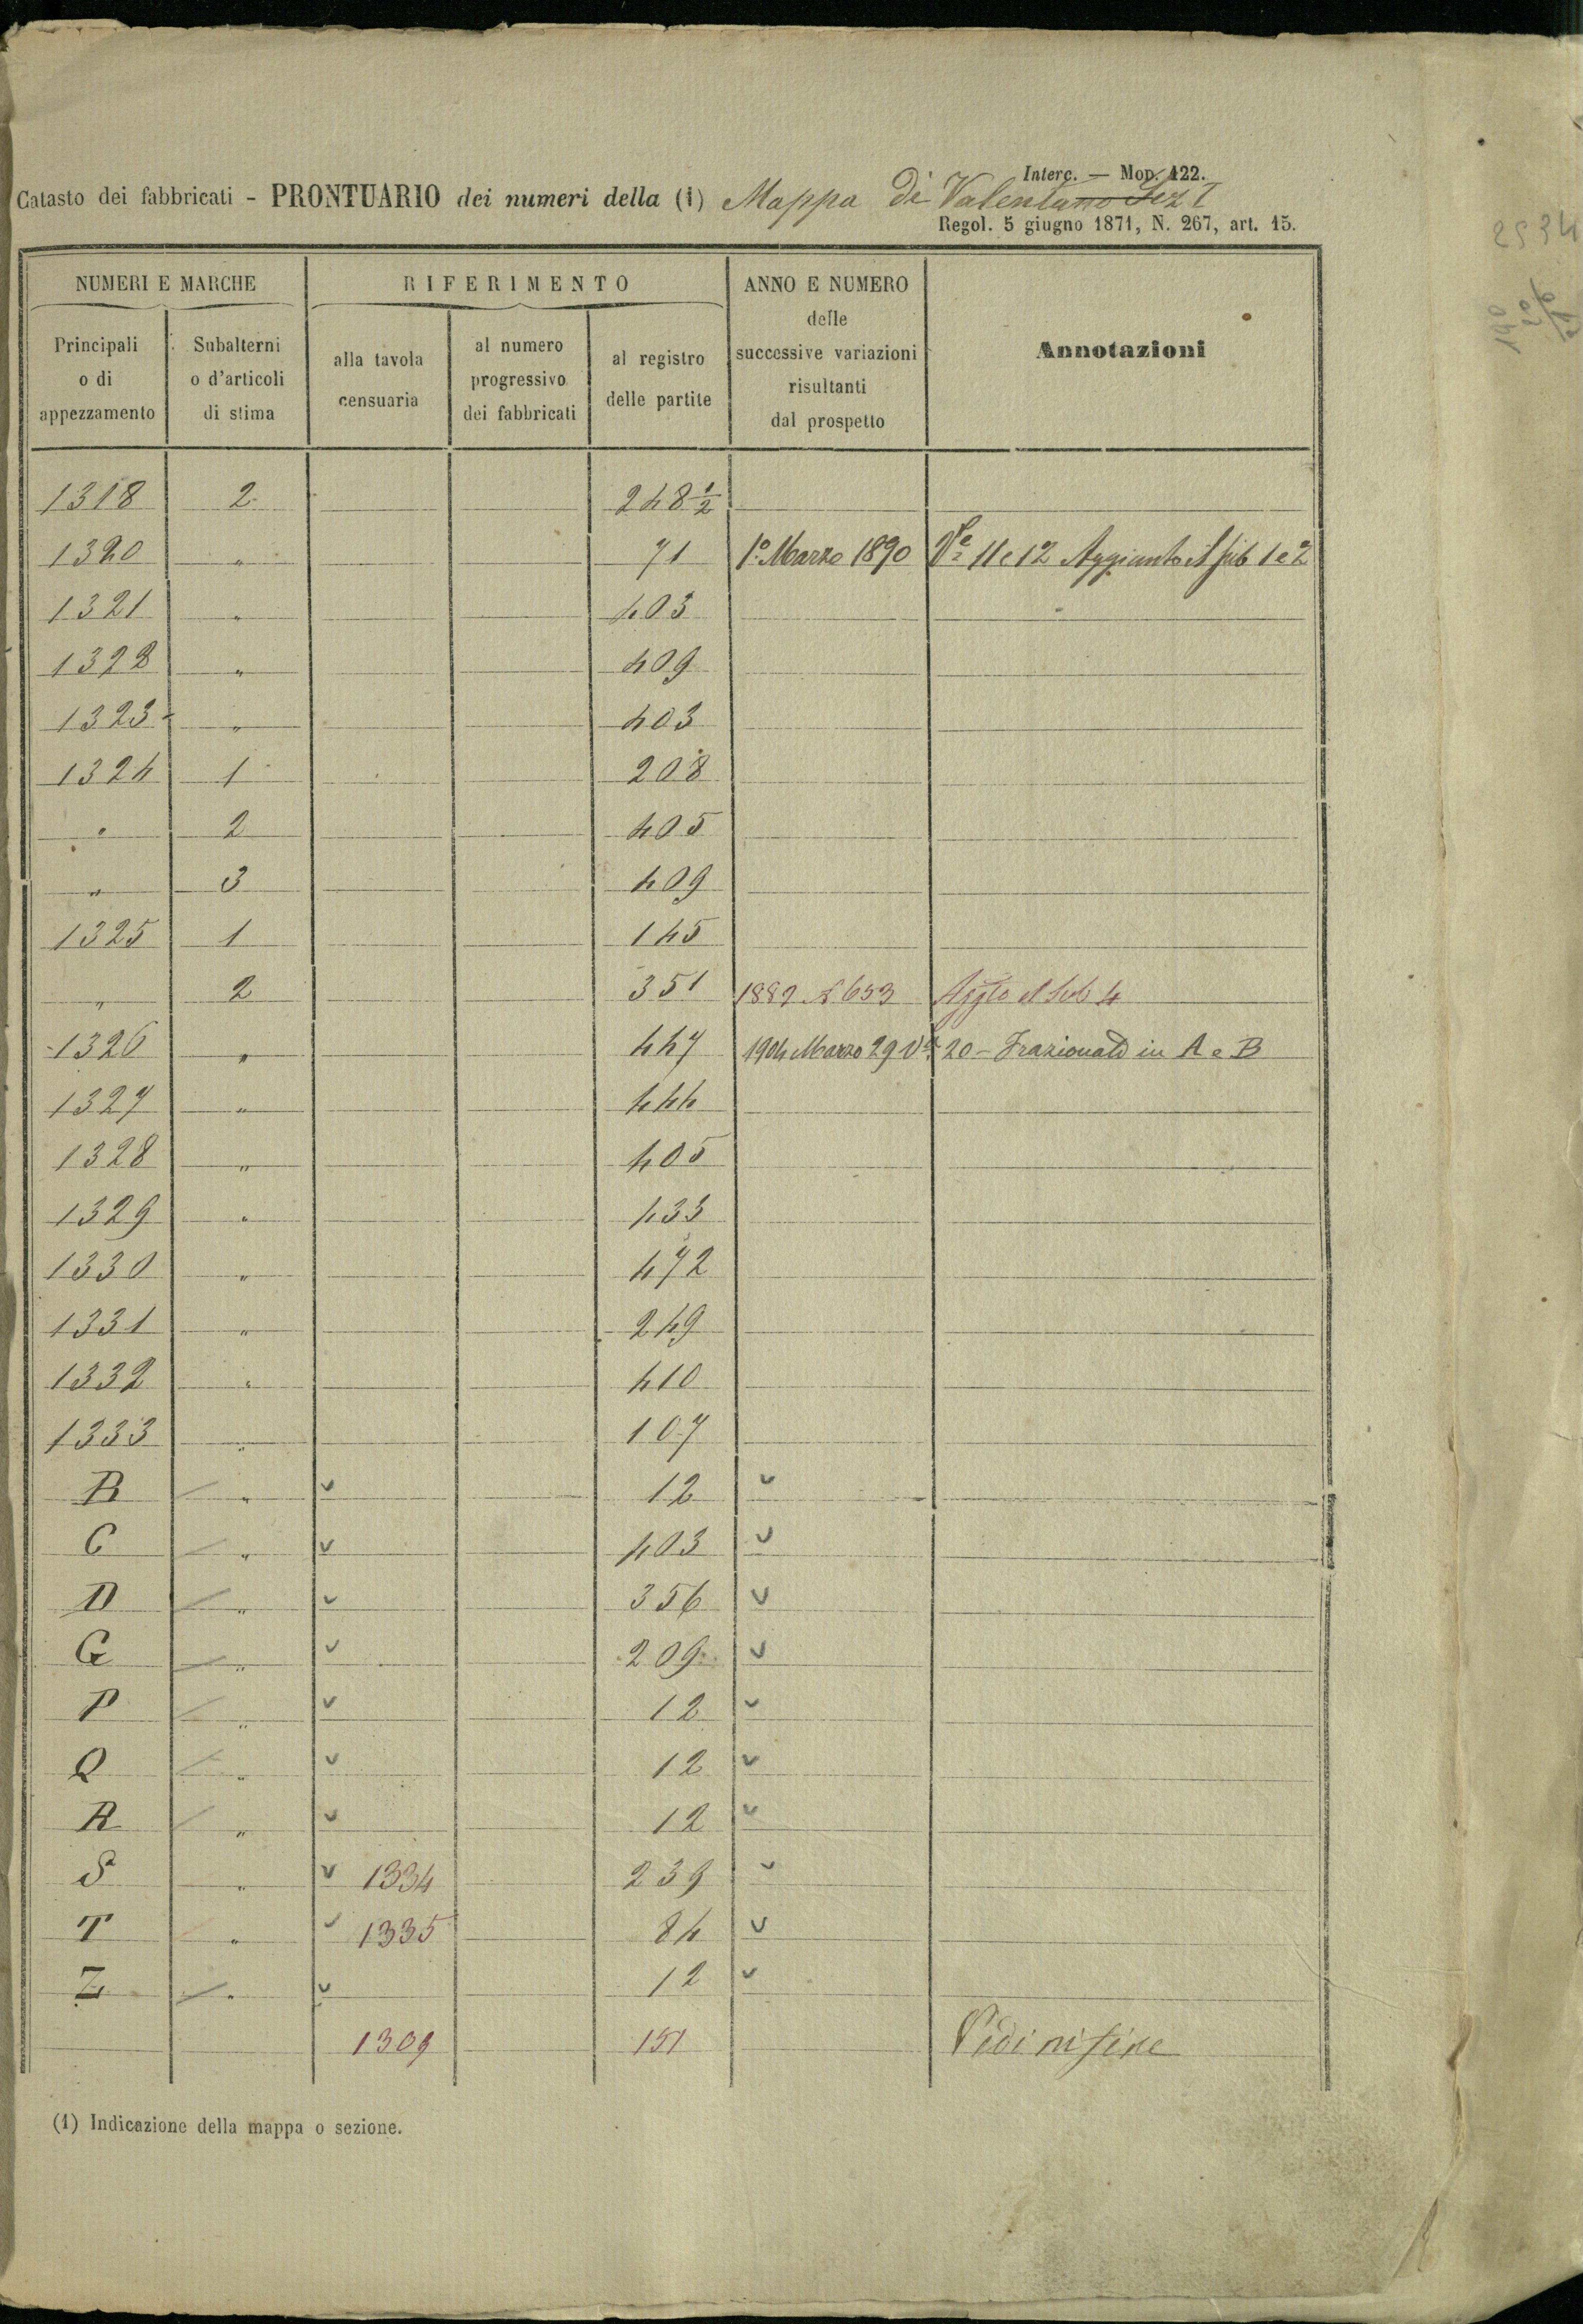 Interc. — Mop. 122.
Catasto dei fabbricati - PRONTUARIO dei numeri della (1) Mappa di Valentano Sez I
Regol. 5 giugno 1871, N. 267, art. 15.
NUMERI E MARCHE
Principali o di appezzamento
Subalterni o d'articoli di stima
RIFERIMENTO
alla tavola censuaria
al numero progressivo dei fabbricati
al registro delle partite
ANNO E NUMERO delle successive variazioni risultanti dal prospetto
Annotazioni
1318 2 248 1/2
1320 " 71 1° Marzo 1890 Ve 11 e 12 Aggiunto il sub 1 e 2
1321 " 403
1322 " 409
1323 " 403
1324 1 208
" 2 405
" 3 409
1325 1 145
" 2 351 1882 N 653 Aggto il Sub 4
1326 " 447 1904 Marzo 29 Va 20 - Frazionato in A e B
1327 " 444
1328 " 405
1329 " 433
1330 " 472
1331 " 249
1332 " 410
1333 " 107
B " v 12 v
C " v 403 v
D " v 356 v
G " v 209 v
P " v 12 v
Q " v 12 v
R " v 12 v
S " v 1334 239 v
T " v 1335 84 v
Z " v 12 v
1309 151 Vedi in fine
(1) Indicazione della mappa o sezione.
2534